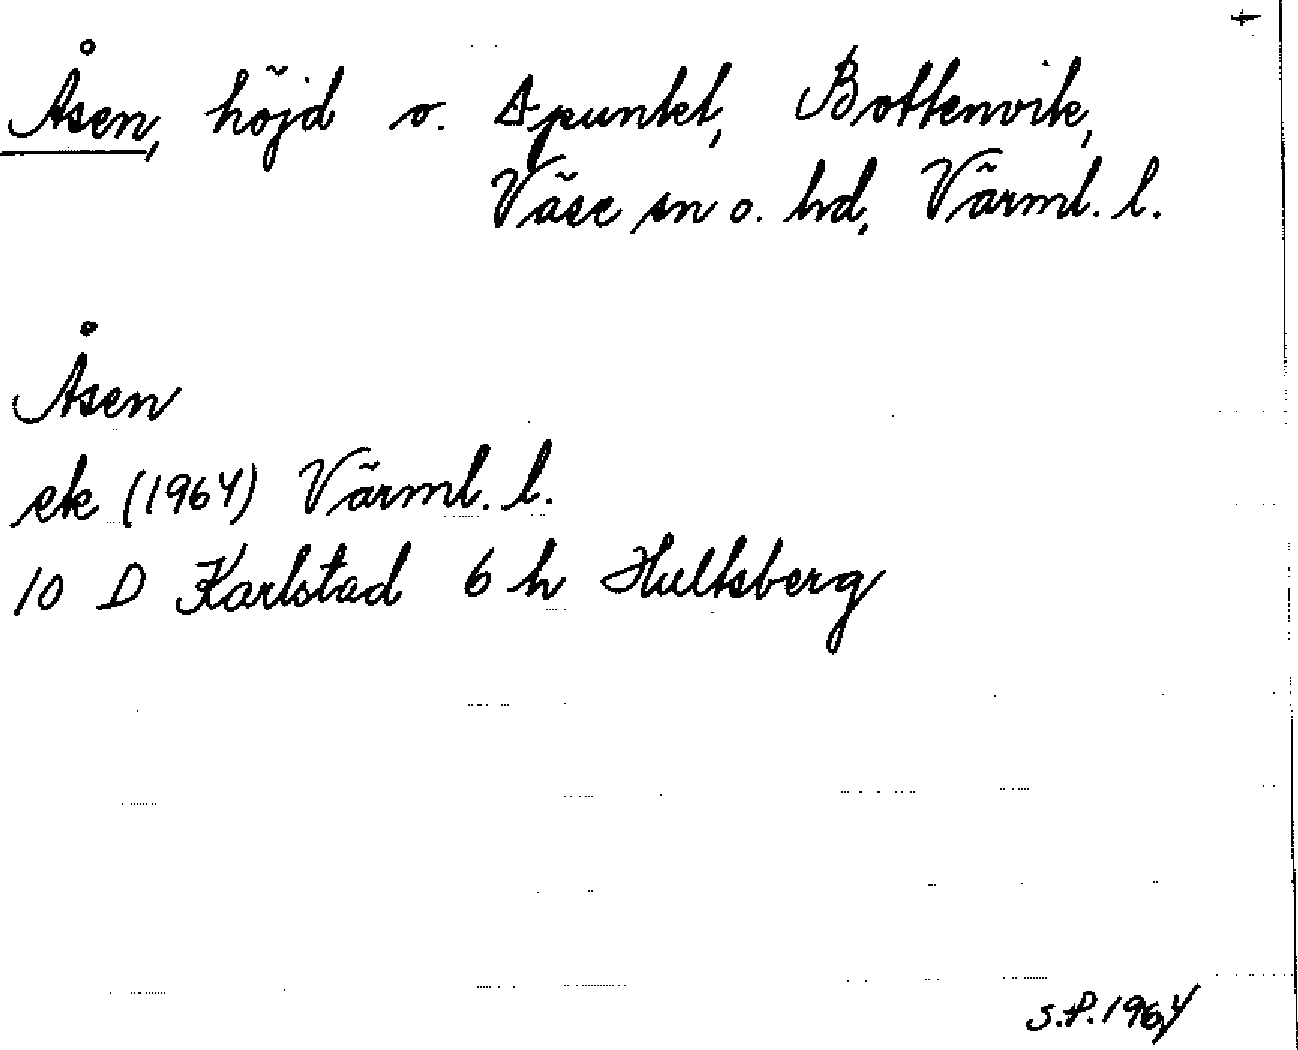 Åsen, höjd o. Δpunkt, Bottenvik,
Väse sn o. hd, Värml. l.
Åsen
ek (1964) Värml. l.
10 D Karlstad 6 h Hultsberg
S.P. 1964